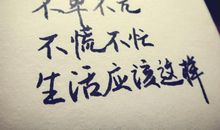 不慌不忙
生活应该这样